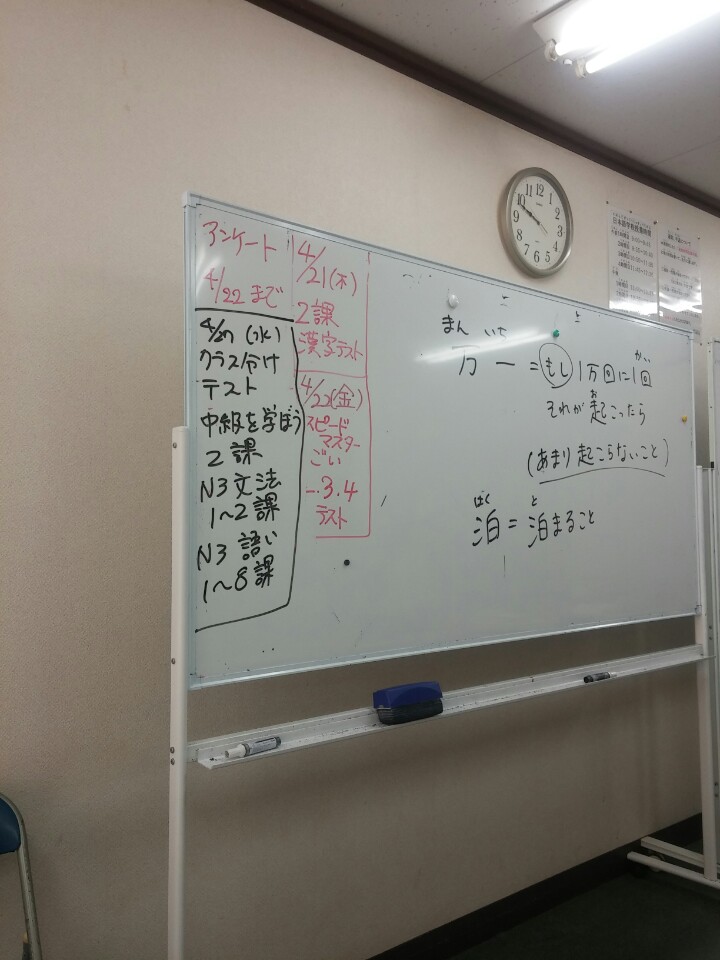 アンケート
4/22まで
4/27(水)
クラス分け
テスト
中級を学ぼう
2課
N3文法
1〜2課
N3 語い
1〜8課
4/21(木)
2課
漢字テスト
4/22(金)
スピード
マスター
ごい
3.4
テスト
まん いち
万一=もし1万回に1回
かい
お
それが起こったら
(あまり起こらないこと)
はく と
泊=泊まること
12
1
2
3
4
5
6
7
8
9
10
11